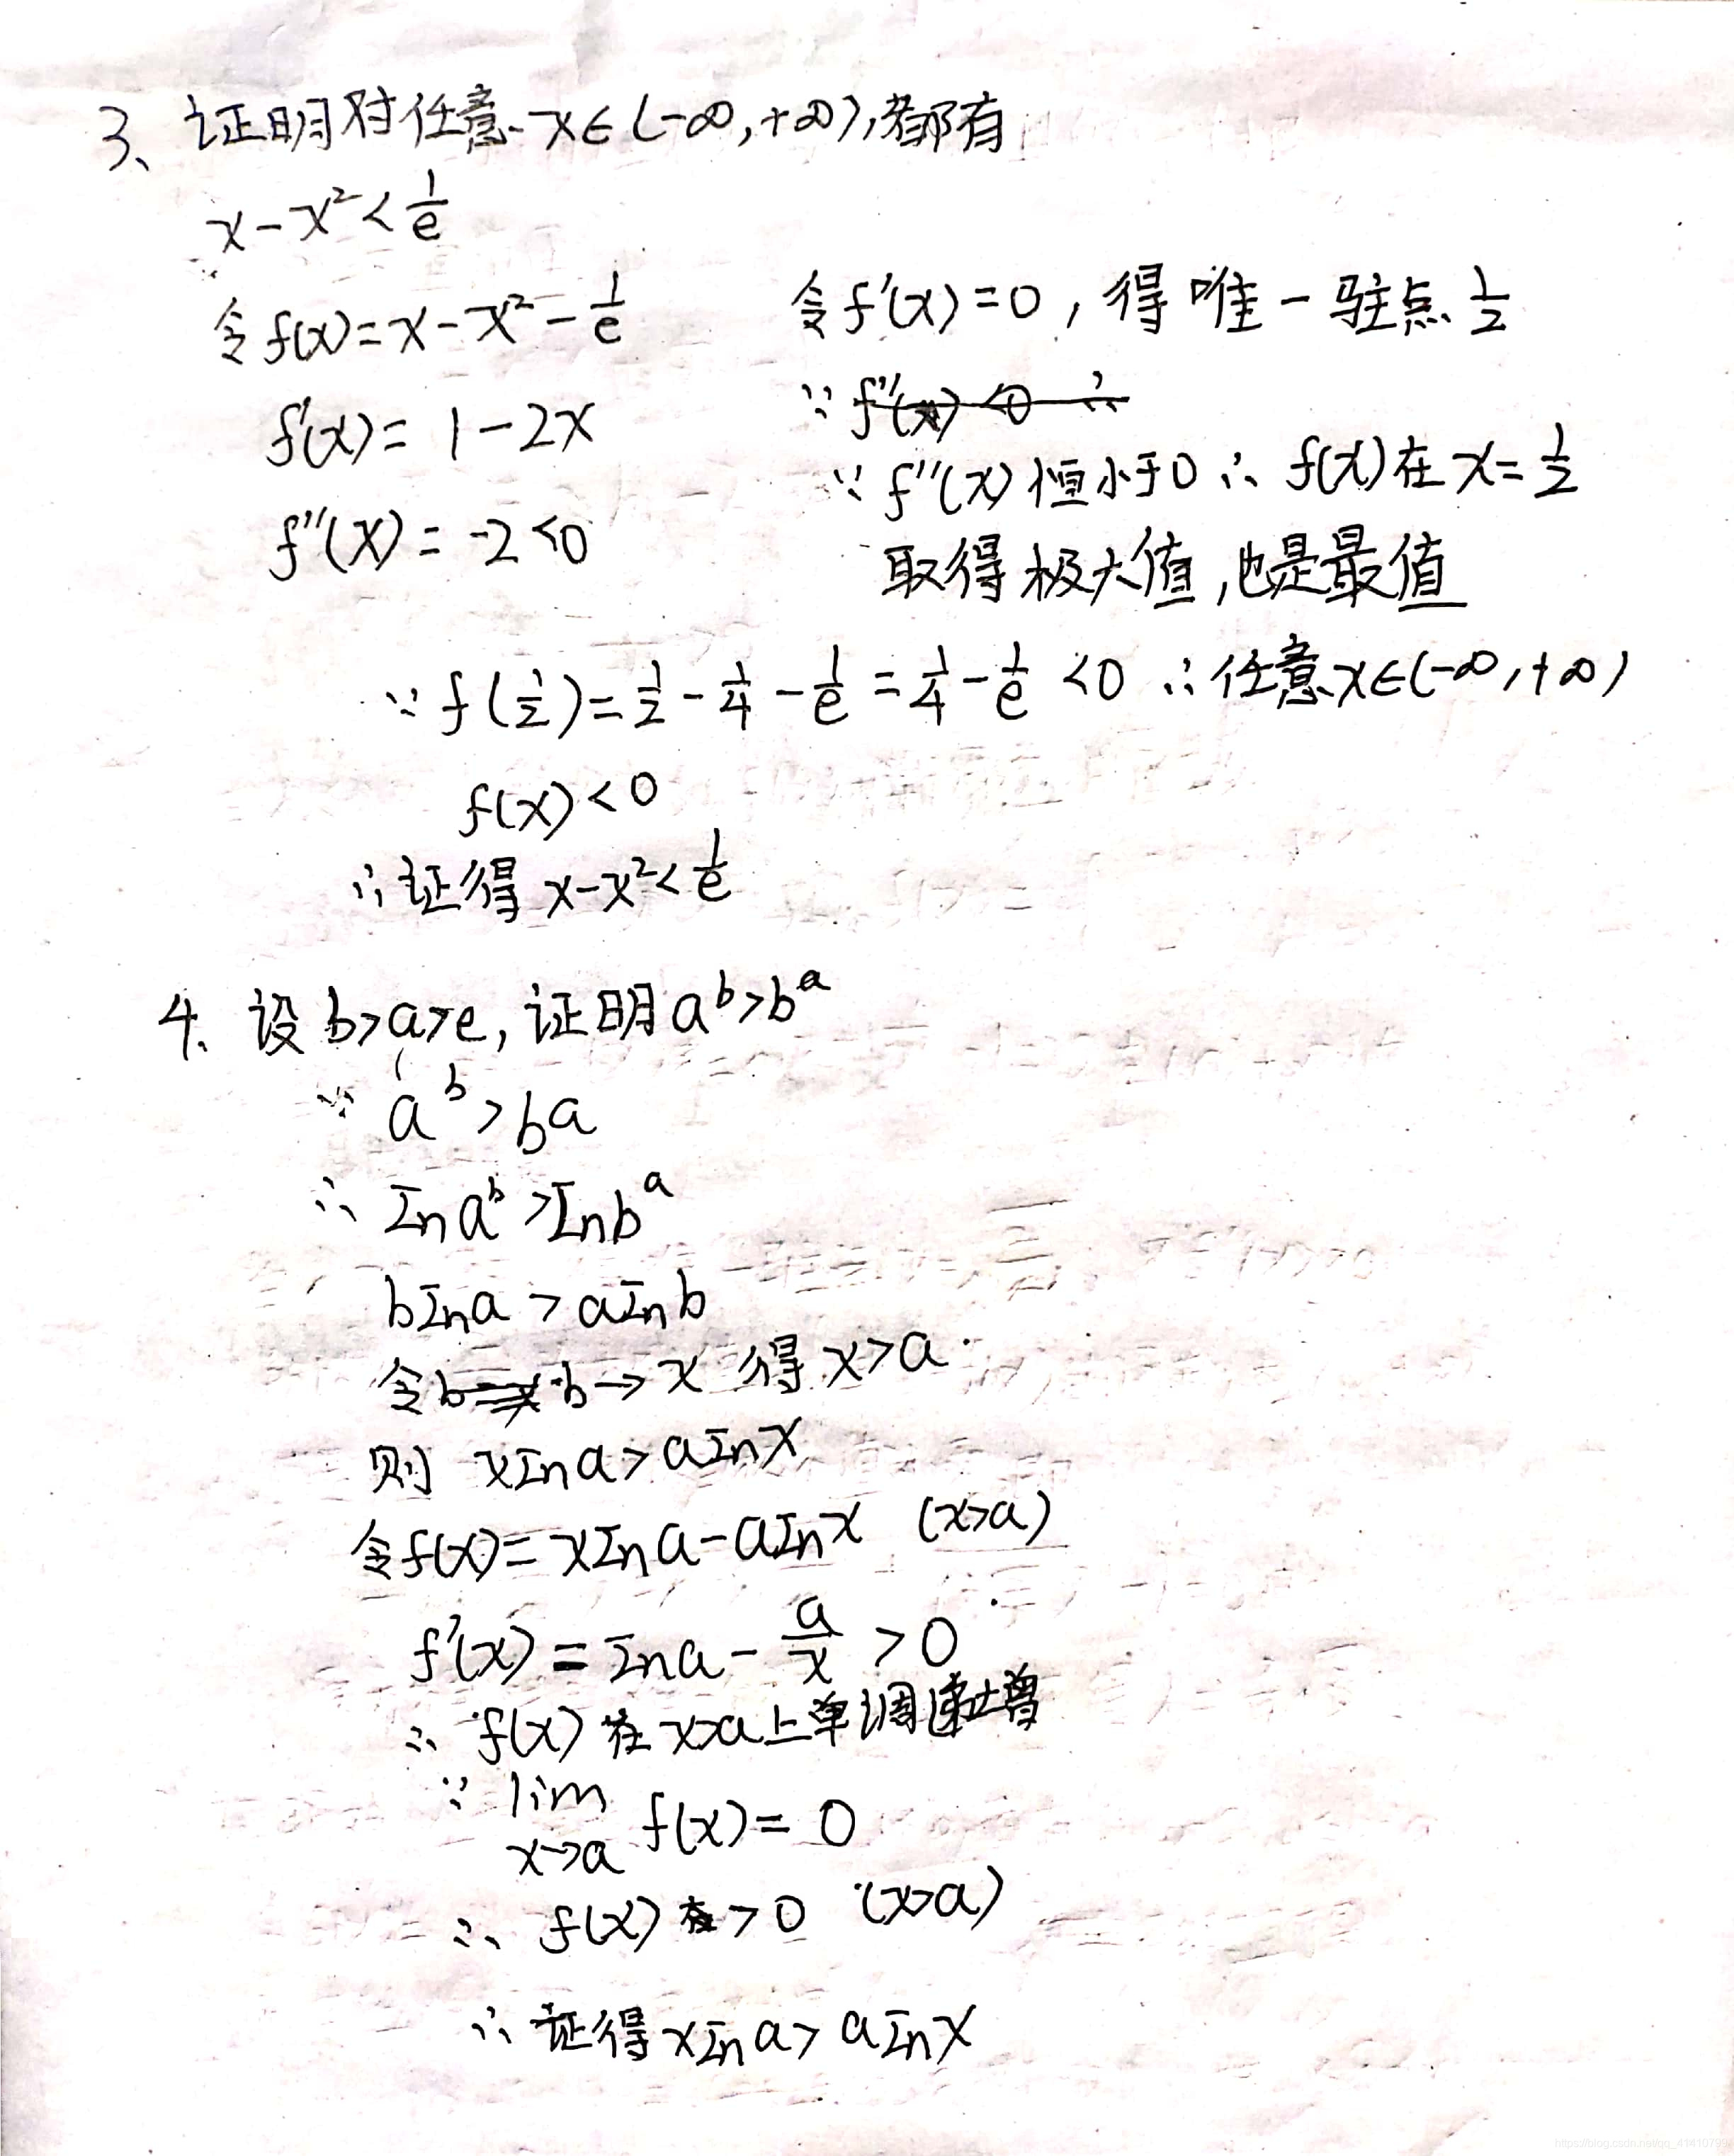 3、证明对任意x∈(-∞,+∞),都有
x-x²<1/e
令f(x)=x-x²-1/e
f'(x)=1-2x
f''(x)=-2<0
令f'(x)=0,得唯一驻点1/2
∵f''(x)<0 ∴
∵f''(x)恒小于0∴f(x)在x=1/2
取得极大值,也是最值
∵f(1/2)=1/2-1/4-1/e=1/4-1/e<0∴任意x∈(-∞,+∞)
f(x)<0
∴证得x-x²<1/e
4、设b>a>e,证明a^b>b^a
∵a^b>ba
∴Ina^b>Inb^a
bIna>aInb
令b→x 得x>a
则 xIna>aInx
令f(x)=xIna-aInx (x>a)
f'(x)=Ina-a/x>0
∴f(x)在x>a上单调递增
∵lim f(x)=0
x→a
∴f(x)>0 (x>a)
∴证得xIna>aInx